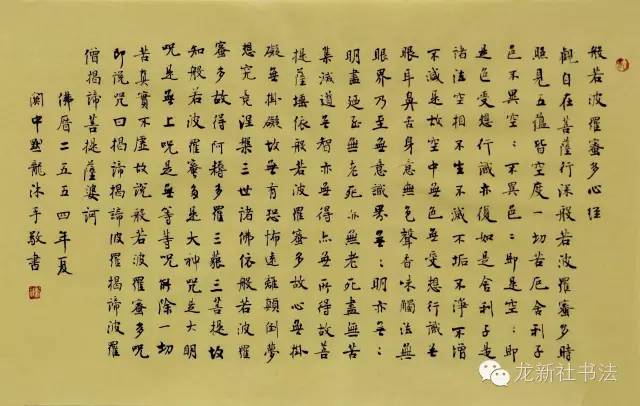 般若波羅蜜多心經
觀自在菩薩行深般若波羅蜜多時
照見五蘊皆空度一切苦厄舍利子
色不異空:不異色:即是空:即
是色受想行識亦復如是舍利子是
諸法空相不生不滅不垢不淨不增
不減是故空中無色無受想行識無
眼耳鼻舌身意無色聲香味觸法無
眼界乃至無意識界無:明亦無:
明盡乃至無老死亦無老死盡無苦
集滅道無智亦無得以無所得故菩
提薩埵依般若波羅蜜多故心無掛
礙無掛礙故無有恐怖遠離顛倒夢
想究竟涅槃三世諸佛依般若波羅
蜜多故得阿耨多羅三藐三菩提故
知般若波羅蜜多是大神咒是大明
咒是無上咒是無等等咒能除一切
苦真實不虛故說般若波羅蜜多咒
即說咒曰揭諦揭諦波羅揭諦波羅
僧揭諦菩提薩婆訶
佛曆二五五四年夏
龍沐手敬書
龙新社书法